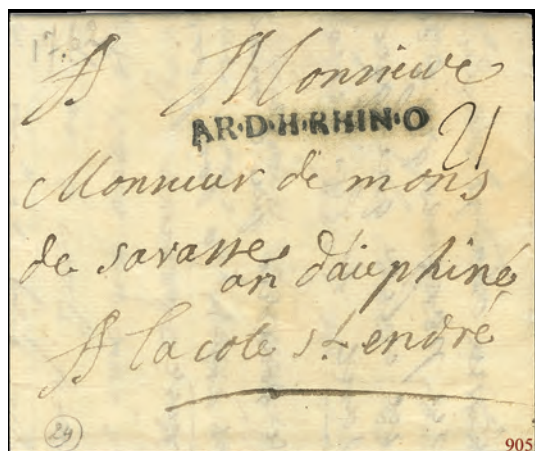 1762
A Monsieur
AR·D·H·RHIN·O
21
Monsieur de mons
de savasse
an dauphiné
A la cote st endré
24
905